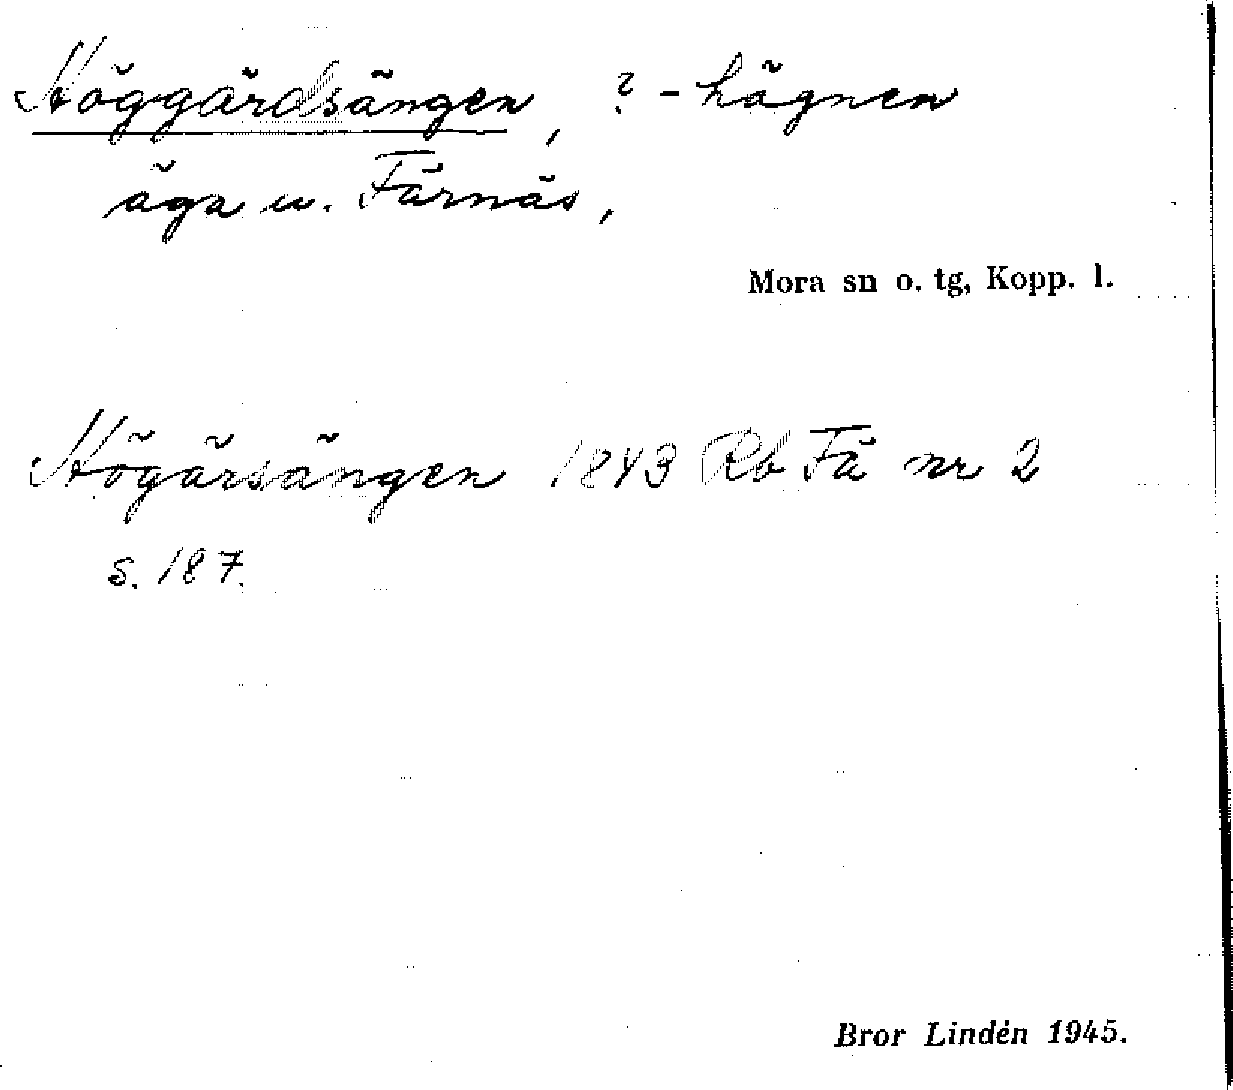 Höggärdsängen, ? - hägnen
äga u. Färnäs,
Mora sn o. tg, Kopp. l.
Högärsängen 1843 Rb Fä nr 2
s. 187.
Bror Lindén 1945.